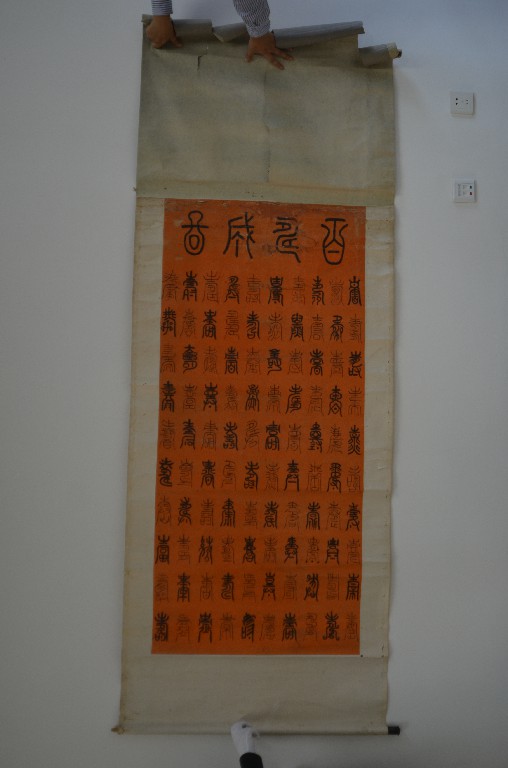 百壽成圖
壽壽壽壽壽壽壽壽壽壽
壽壽壽壽壽壽壽壽壽壽
壽壽壽壽壽壽壽壽壽壽
壽壽壽壽壽壽壽壽壽壽
壽壽壽壽壽壽壽壽壽壽
壽壽壽壽壽壽壽壽壽壽
壽壽壽壽壽壽壽壽壽壽
壽壽壽壽壽壽壽壽壽壽
壽壽壽壽壽壽壽壽壽壽
壽壽壽壽壽壽壽壽壽壽